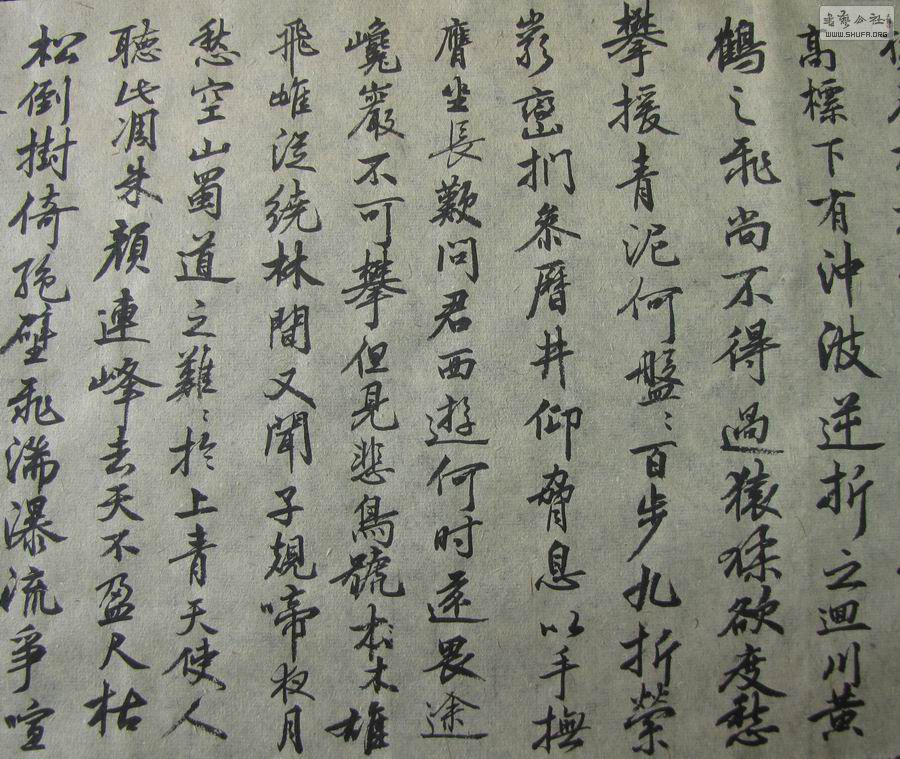 高標下有沖波逆折之迴川黃
鶴之飛尚不得過猿猱欲度愁
攀援青泥何盤〻百步九折縈
巖巒捫參曆井仰脅息以手撫
膺坐長歎問君西遊何时還畏途
巉巖不可攀但見悲鳥號木雄
飛雌從繞林間又聞子規啼夜月
愁空山蜀道之難〻於上青天使人
聽此凋朱顏連峰去天不盈尺枯
松倒樹倚絕壁飛湍瀑流爭喧
书艺公社
WWW.SHUFA.ORG